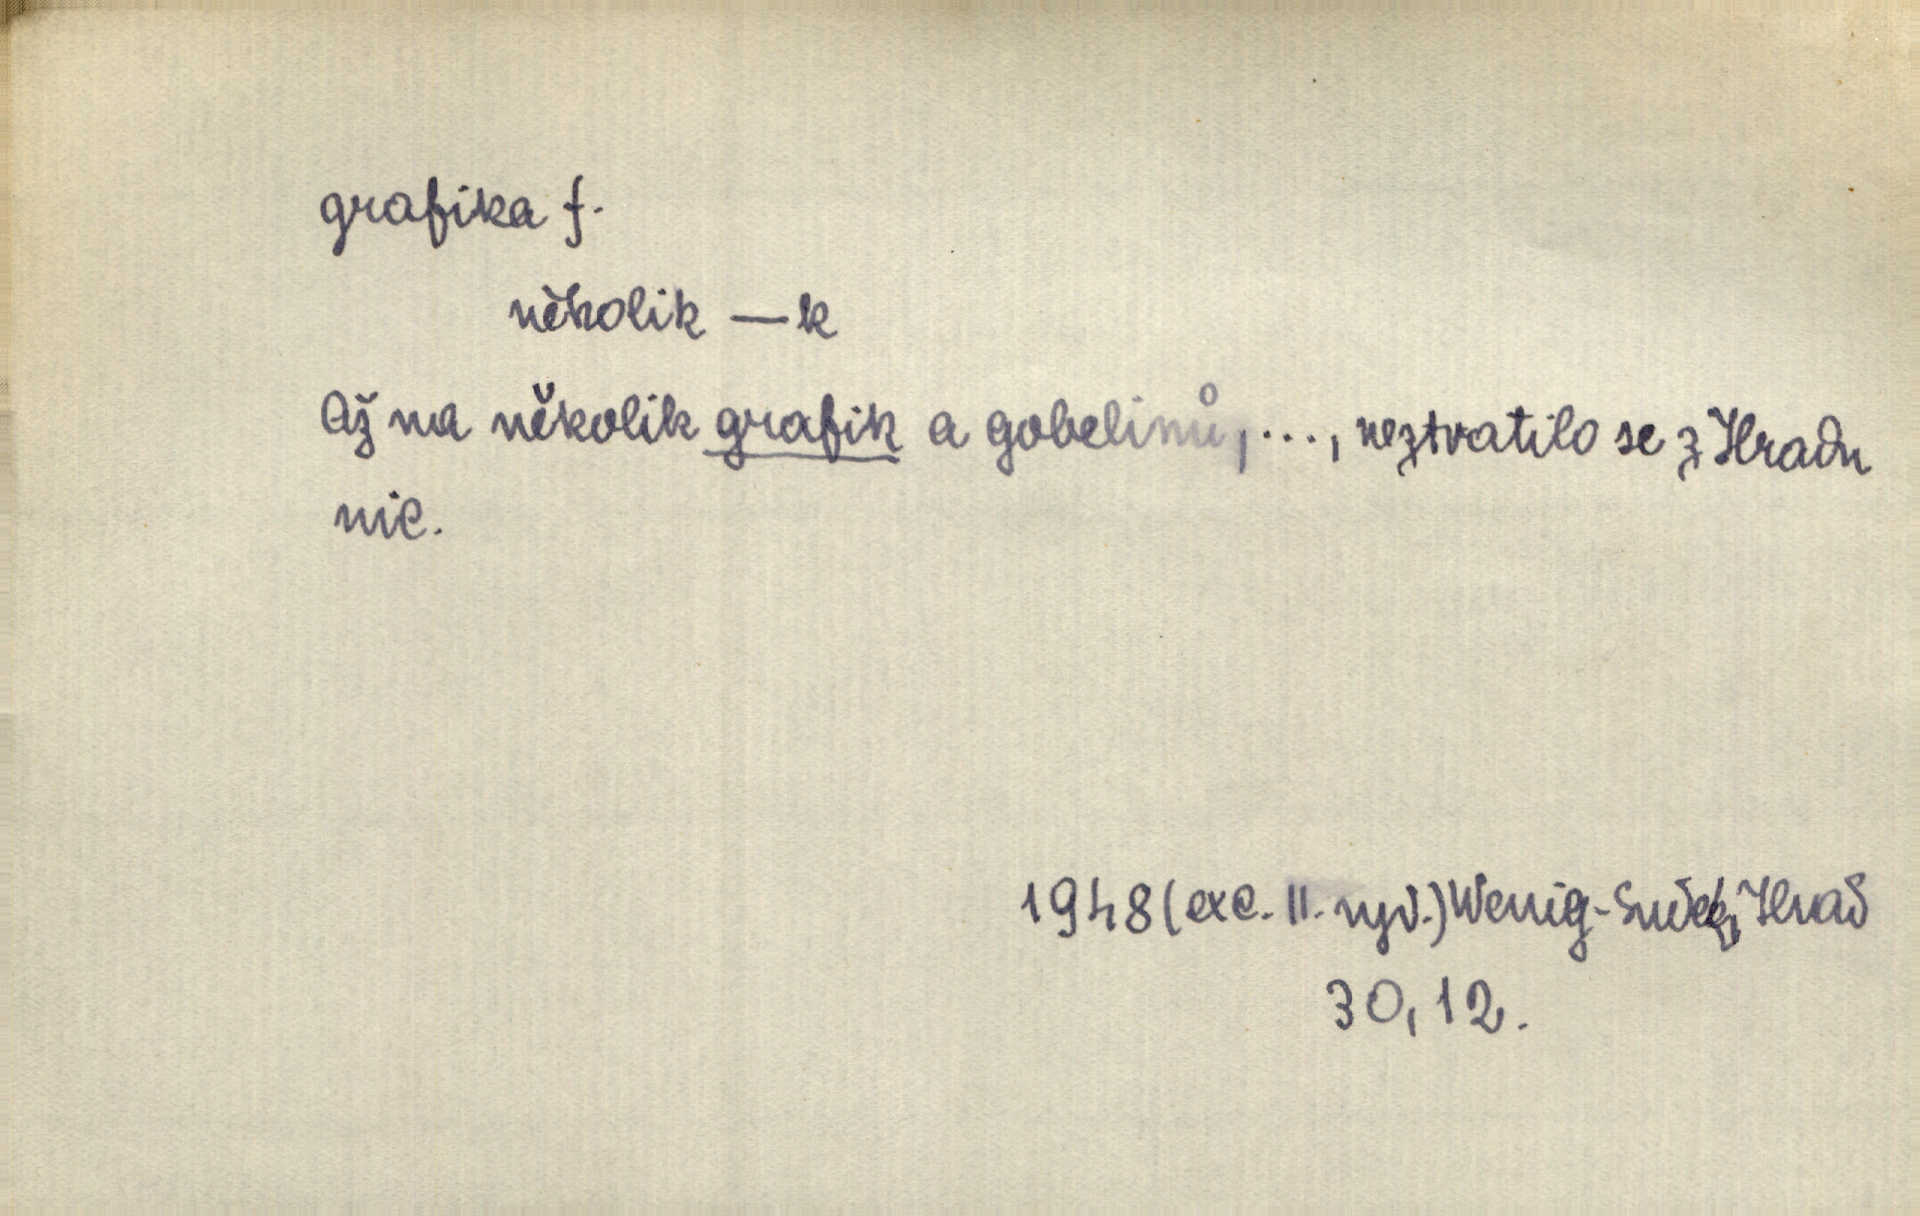 grafika f.
několik —k
Až na několik grafik a gobelinů, ..., neztratilo se z Hradu
nic.
1948 (exc. II. vyd.) Wenig- Hrad
30, 12.